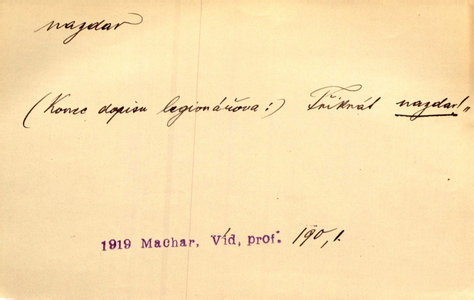 nazdar
(Konec dopisu legionářova:) Třikrát nazdar!„
1919 Machar, Víd, prof. 190, 1.